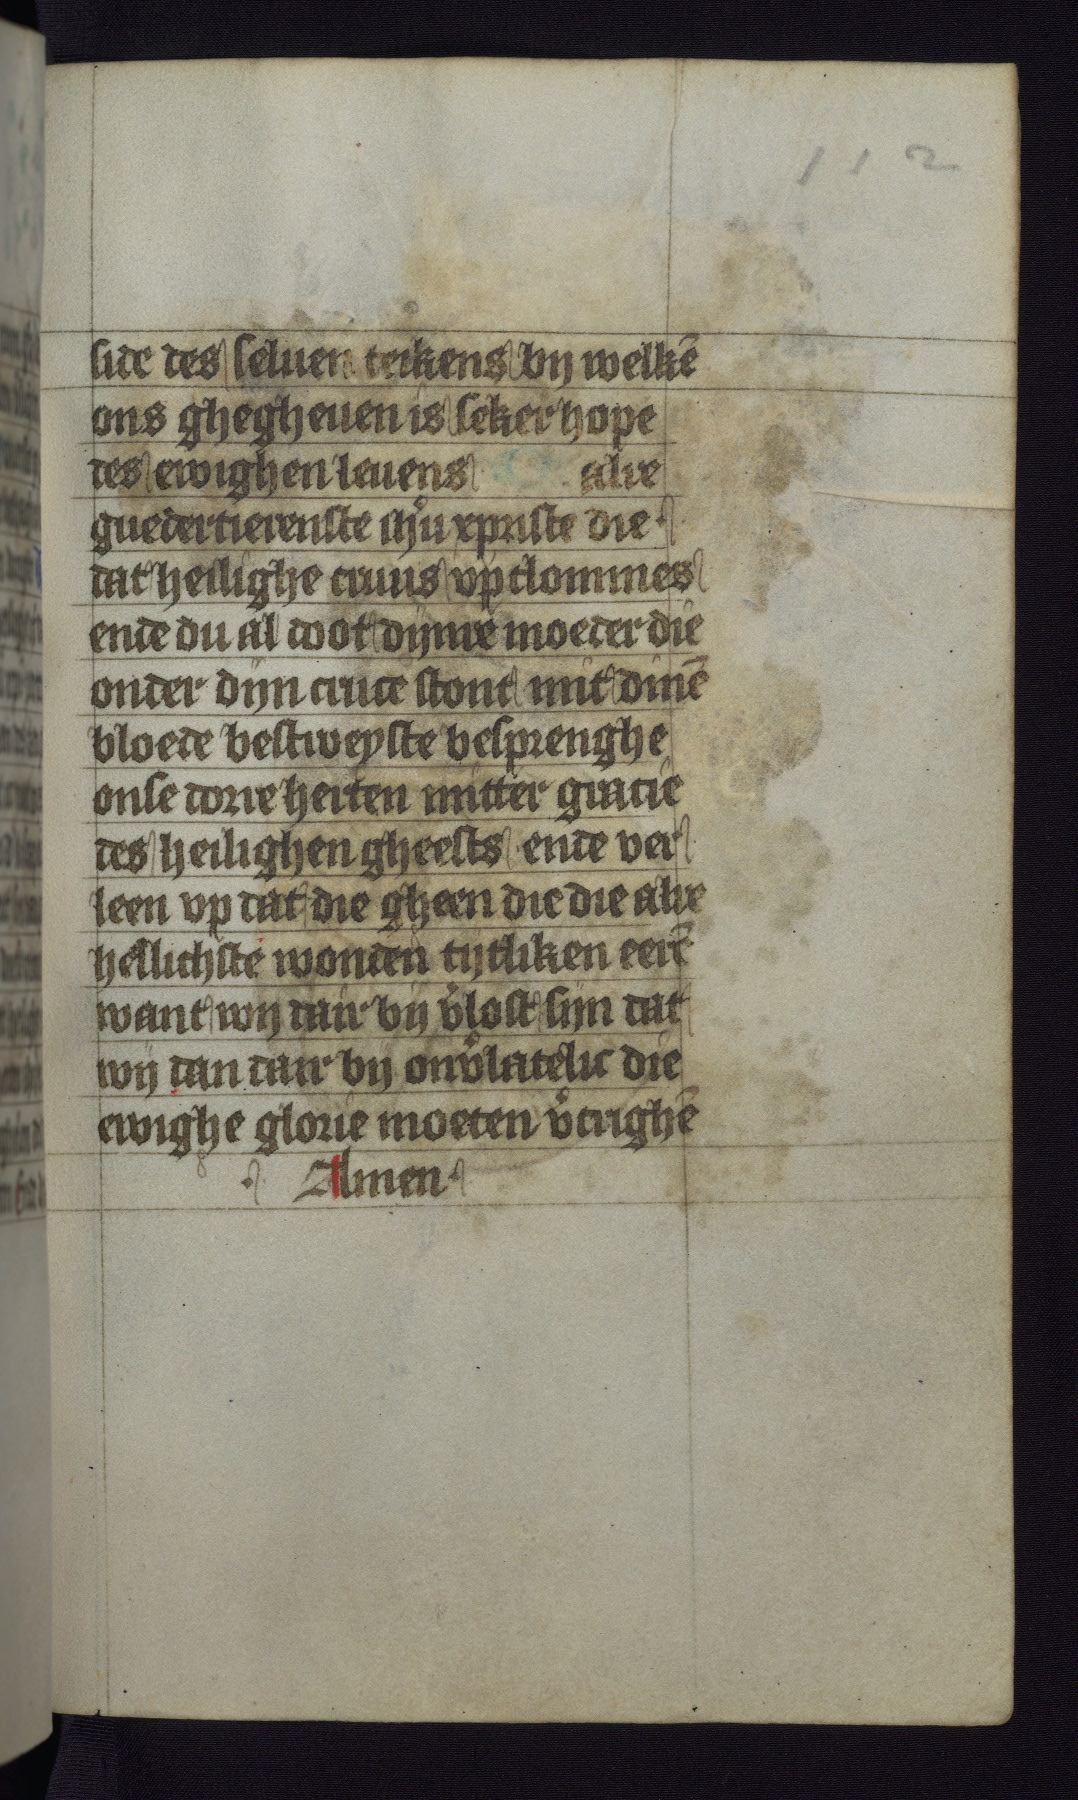 112
side des seluen teikens bij welkē
ons ghegheuen is seker hope
des ewighen leuens alre
guedertierenste ihū xpriste die
dat heilighe cruus vp clommes
ende du al doot dijnre moeder die
onder dijn cruce stont mit dinē
bloede bestweyste besprenghe
onse dorre herten mitter gracie
des heilighen gheests ende ver
leen vp dat die gheen die die alre
heilichste wonden tijtliken eerē
want wij dair bij v̄lost sijn dat
wij dan dair bij onv̄latelic die
ewighe glorie moeten v̄crighē
Amen